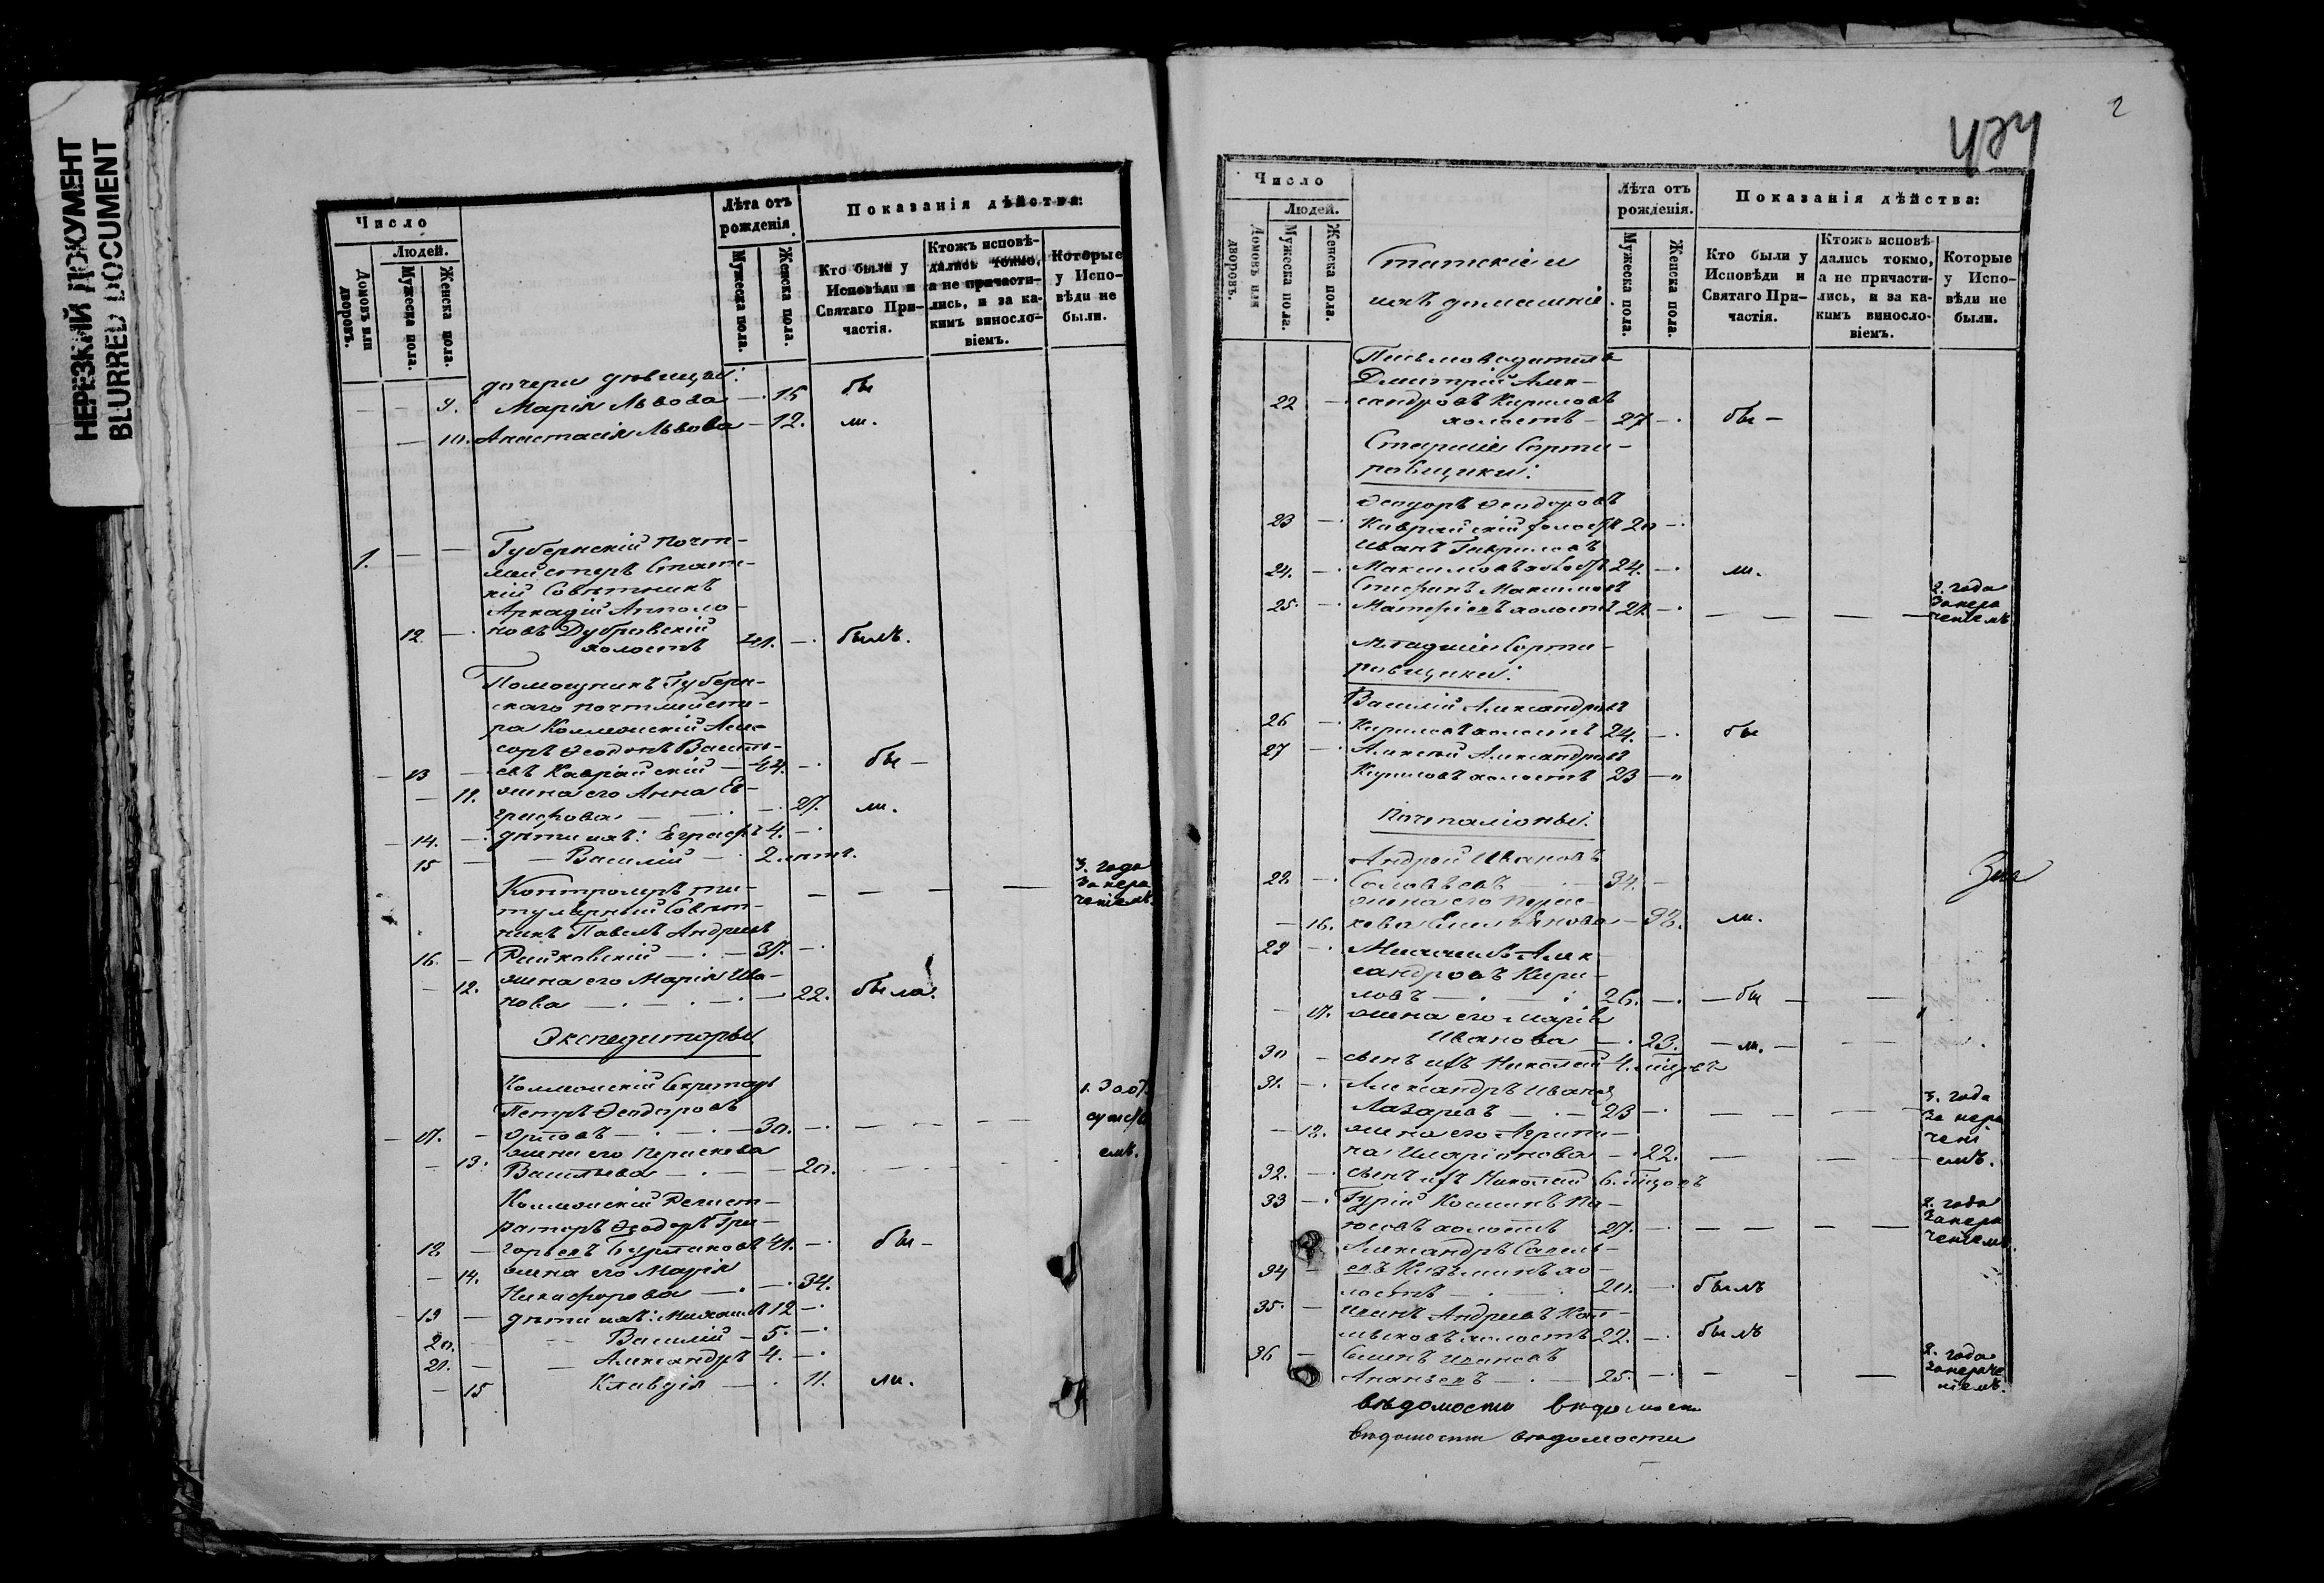 НЕРЕЗКИЙ ДОКУМЕНТ
BLURRED DOCUMENT
Число
Людей.
Домовъ или дворовъ.
Мужеска пола.
Женска пола.
Лѣта отъ рожденія
Мужеска пола.
Женска пола.
Показанія дѣйства:
Кто были у Исповѣди и Святаго Причастія.
Ктожъ исповѣдались токмо, а не причастились, и за какимъ винословіемъ.
Которые у Исповѣди не были.
дочери дѣвицы:
9. Марія Львова 15 бы
10. Анастасія Львова 12. ли.
1. Губернскій Почт-
мейстеръ Статс-
кій Совѣтникъ
Аркадій Апполо-
12. новъ Дубровскій
холостъ 41. былъ.
Помощникъ Губерн-
скаго Почтмейсте-
ра Коллежскій Асес-
соръ
13 евъ Кавройскій 44. бы
11. жена его Анна Ев-
графова 27. ли.
14. дѣти ихъ: Евграфъ 4.
15 Василій 2
Контролеръ ти-
тулярный Совѣт-
никъ Павелъ Андреевъ
3. года
за нера
ченіемъ.
16. Райковскій 37.
12. жена его Марія Ива-
нова 22. была.
Экспедиторы
Коллежскій Секретарь
Петръ Ѳеодоровъ
17. Орловъ 30.
13. жена его Параскева
Васильева 20.
1. За от
сутстві
емъ.
Коллежскій Регист-
раторъ Ѳеодоръ Гри-
18 горьевъ Бурлаковъ 41. бы
14. жена его Марія
Никифорова 34.
19 дѣти ихъ: Михаилъ 12
20. Василій 5.
21. Александръ 4.
15 Клавдія 11. ли.
2
Число
Людей.
Домовъ или дворовъ.
Мужеска пола.
Женска пола.
Статскіе и
ихъ домашніе
Лѣта отъ рожденія.
Мужеска пола.
Женска пола.
Показанія дѣйства:
Кто были у Исповѣди и Святаго Причастія.
Ктожъ исповѣдались токмо, а не причастились, и за какимъ винословіемъ.
Которые у Исповѣди не были.
Письмоводитель
Дмитрій Алек-
22 сандровъ Кириловъ
холостъ 27 бы
Старшіе Сорти-
ровщики:
Ѳеодоръ Ѳеодоровъ
23 Кавройскій холостъ 20
Иванъ Гавриловъ
24. Максимовъ холостъ 24. ли.
Стефанъ Максимовъ
25. холостъ 21.
2. года
за нера
ченіемъ
Младшіе Сорти-
ровщики:
Василій Александровъ
26 Кириловъ холостъ 24. бы
27 Алексѣй Александровъ
Кириловъ холостъ 23
Почталіоны:
Андрей Ивановъ
28. Соловьевъ 34.
жена его Парас-
16. кева Емельянова 32. ли.
29 Михаилъ Алек-
сандровъ Кири-
ловъ 26. бы
17. жена его Марія
Иванова 23. ли.
30 сынъ ихъ Николай 4.
31. Александръ Иванов
Лазаревъ 23
3. года
за нера
чені
емъ.
18. жена его Агрипи-
на Иларіонова 22.
32. сынъ ихъ Николай 6.
33 Гурій Косминъ
холостъ 27.
2. года
за нера
ченіемъ.
Александръ Савель-
34 евъ Кузьминъ хо-
лостъ 20. былъ
35. Андреевъ
холостъ 22. былъ
36 Семенъ Ивановъ
Ананьевъ 25.
2. года
за нераче
ніемъ.
вѣдомости вѣдомости
Вѣдомости вѣдомости